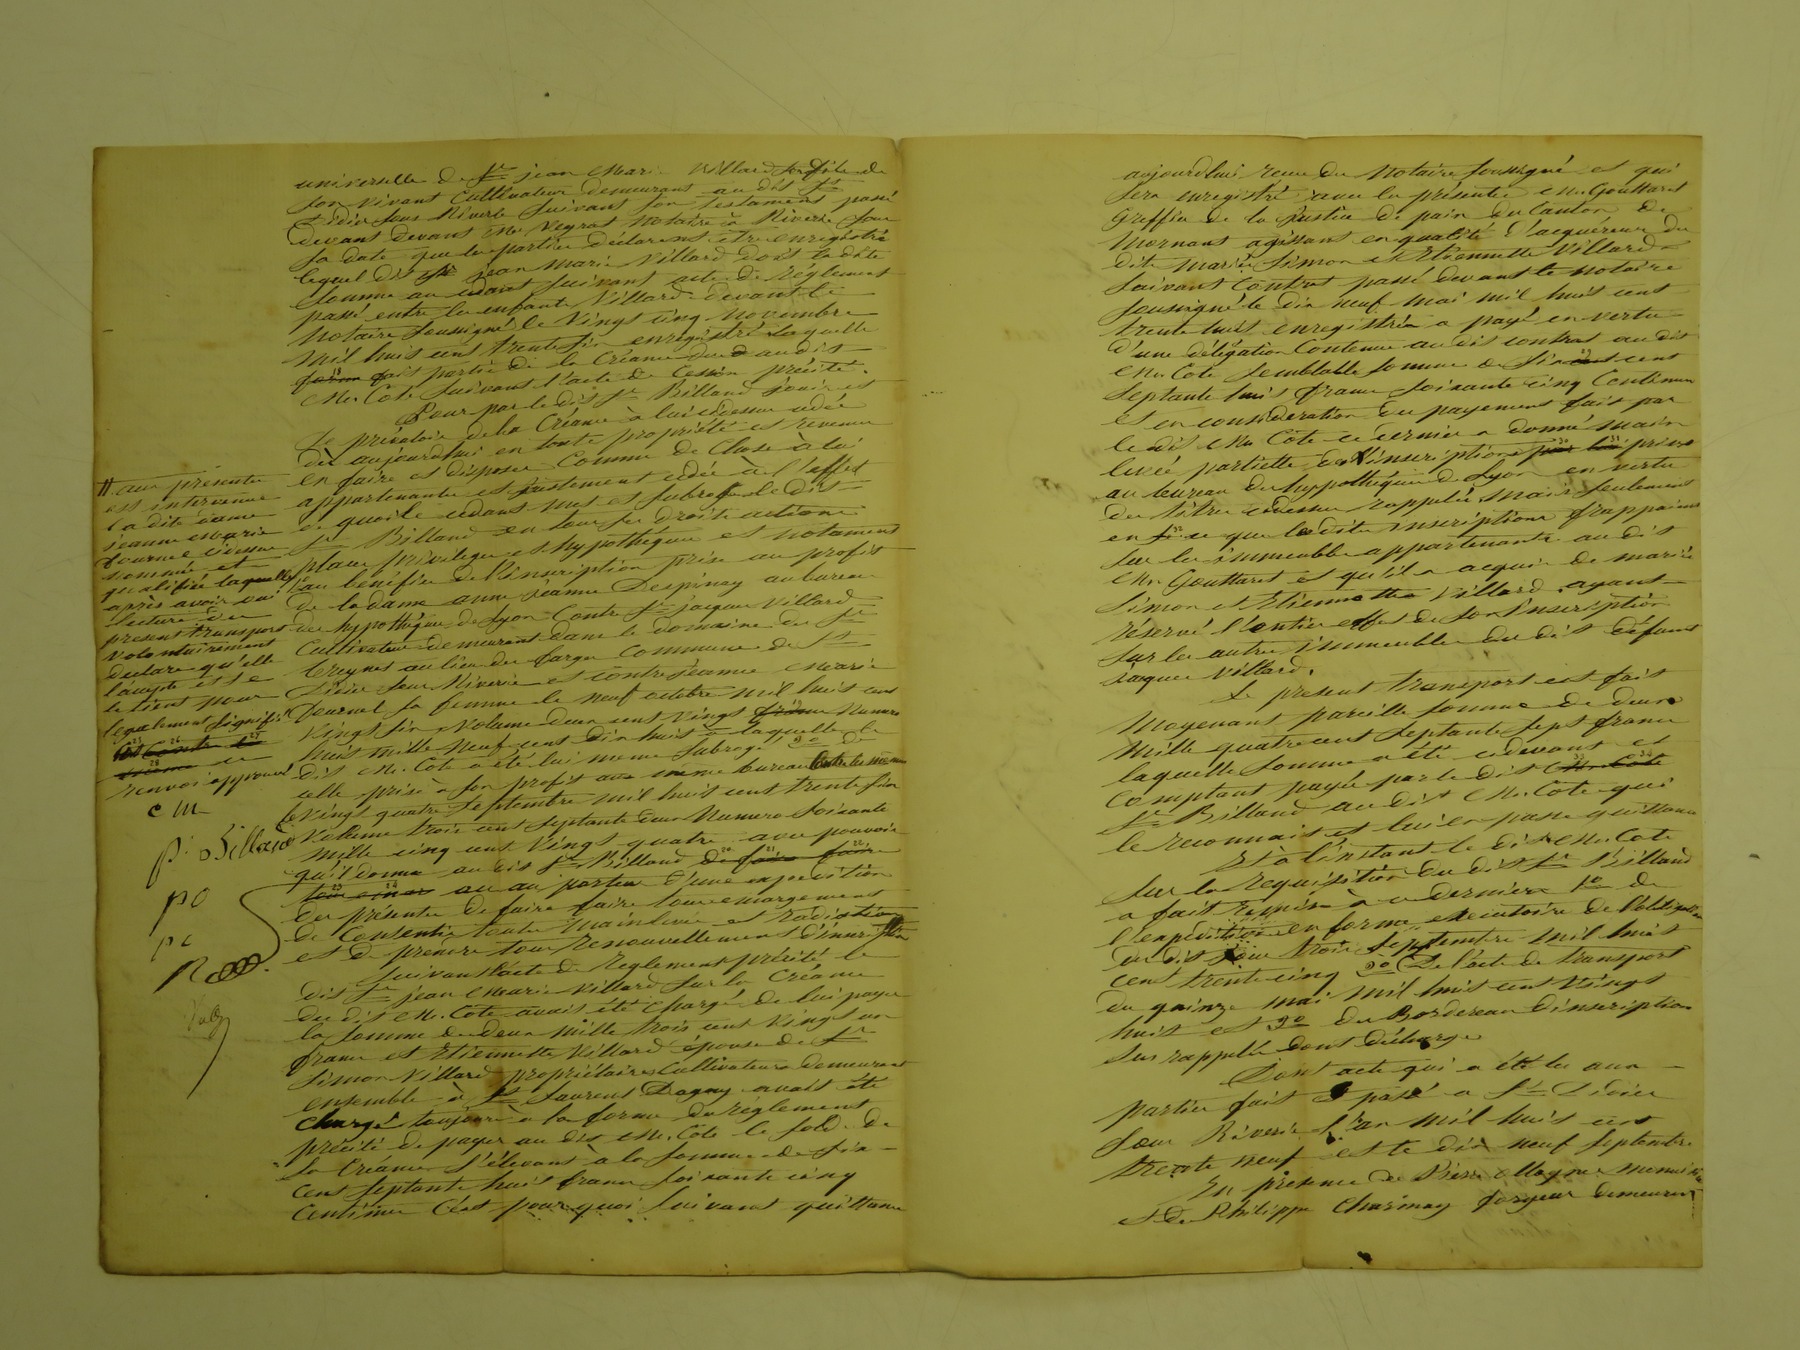 universelle de Sr jean Marie Villard son père de
son vivant Cultivateur demeurant au dit St
Didier sous Riverie suivant son testament passé
devant devant Me Veyrat Notaire à Riverie sous
sa date que les parties déclarent être enregistré
lequel dit Sr jean Marie Villard doit la dite
somme au cédant suivant acte de règlement
passé entre les enfants Villard devant le
Notaire soussigné le Vingt cinq novembre
mil huit cent trente six enregistré laquelle
fait partie de la Créance due audit
Me Cote suivant l'acte de Cession précité.
Pour par le dit Sr Billard jouir et
se prévaloir de la Créance à lui cidessus cédée
dès aujourdhui en toute propriété et revenus
en faire et disposer Comme de Chose à lui
appartenante et justement cédée à l'effet
de quoi le cédant met et subroge le dit
Sr Billard en tous ses droits actions
places privilèges et hypothèques et notament
au bénéfice de l'inscription prise au profit
de la dame anne jeanne Despinay au bureau
des hypothèques de Lyon Contre Sr jacques Villard
Cultivateur demeurant dans le domaine de Sr
Creynet au lieu des farges Commune de St
Didier sous Riverie et contre jeanne Marie
Journel sa femme le neuf octobre mil huit cent
vingt six volume deux cent vingt Numéro
huit mille Neuf cent dix huit à laquelle le
dit Me Cote a été lui même subrogé, 2o de
celle prise à son profit au même bureau Contre les mêmes
le Vingt quatre septembre mil huit cent trente six
volume trois cent septante deux Numéro soixante
mille cinq cent Vingt quatre avec pouvoir
qu'il donne au dit Sr Billard de faire faire
tous émar ou au porteur d'une expédition
des présentes de faire faire tous émargement
de Consentir toutes Mainlevée et radiation
et de prendre tous renouvellement d'inscription
Suivant l'acte de Règlement précité le
dit Sr jean Marie Villard sur la Créance
du dit Me Cote avait été Chargé de lui payer
la somme de deux mille trois cent Vingt un
francs et Etiennette Villard épouse de Sr
Simon Villard propriétaires Cultivateurs demeurant
ensemble à St Laurent Dagny avait été
Chargé toujours à la forme du règlement
précité de payer au dit Me Cote le solde de
sa Créance s'élevant à la somme de six
cent septante huit francs soixante cinq
Centimes C'est pourquoi suivant quittance
# aux présentes
est intervenue
la dite dame
jeanne Marie
Journel cidessus
nommée et
qualifiée laquelle
après avoir ouï
lecture du
présent transport
volontairement
déclare qu'elle
l'accepte et se
le tient pour
légalement signifié
renvoi approuvé
C M
p. Billard
p o
p c
aujourdhui reçue du Notaire soussigné et qui
sera enregistré avec la présente Me Gouttaret
Greffier de la justice de paix du Canton de
Mornant agissant en qualité d'acquéreur des
dits mariés Simon et Etiennette Villard
suivant Contrat passé devant le notaire
soussigné le dix neuf mai mil huit cent
trente huit enregistré a payé en vertu
d'une délégation Contenue au dit contrat au dit
Me Cote semblable somme de six cent
septante huit francs soixante cinq Centimes
et en considération du payement fait par
le dit Me Cote ce dernier a donné main
levée partielle des inscriptions prises
au bureau des hypothèques de Lyon en vertu
des titres cidessus rappelés mais seulement
en ce que les dites inscriptions frappaient
sur les immeubles appartenants au dit
Me Gouttaret et qu'il a acquis des mariés
Simon et Etiennette Villard ayant
réservé l'entier effet de son inscription
sur les autres immeubles du dit défunt
Jaques Villard.
Le présent transport est fait
Moyenant pareille somme de deux
mille quatre cent septante sept francs
laquelle somme a été cidevant et
Comptant payée par le dit Me Cote
Sr Billard au dit Me Cote qui
le reconnait et lui en passe quittance
Et à l'instant le dit Me Cote
sur la requisition du dit Sr Billard
a fait remise à ce dernier 1o de
l'expédition en forme exécutoire de l'obligation
du dit jour trois septembre mil huit
cent trente cinq 2o De l'acte de transport
du quinze mai mil huit cent Vingt
huit et 3o du Bordereau d'inscription
sus rappelés dont décharge
Dont acte qui a été lu aux
parties fait et passé à St Didier
sous Riverie l'an mil huit cent
trente neuf et le dix neuf septembre
En présence de Pierre Magnus menuisier
et de Philippe Charmay forgeur demeurant